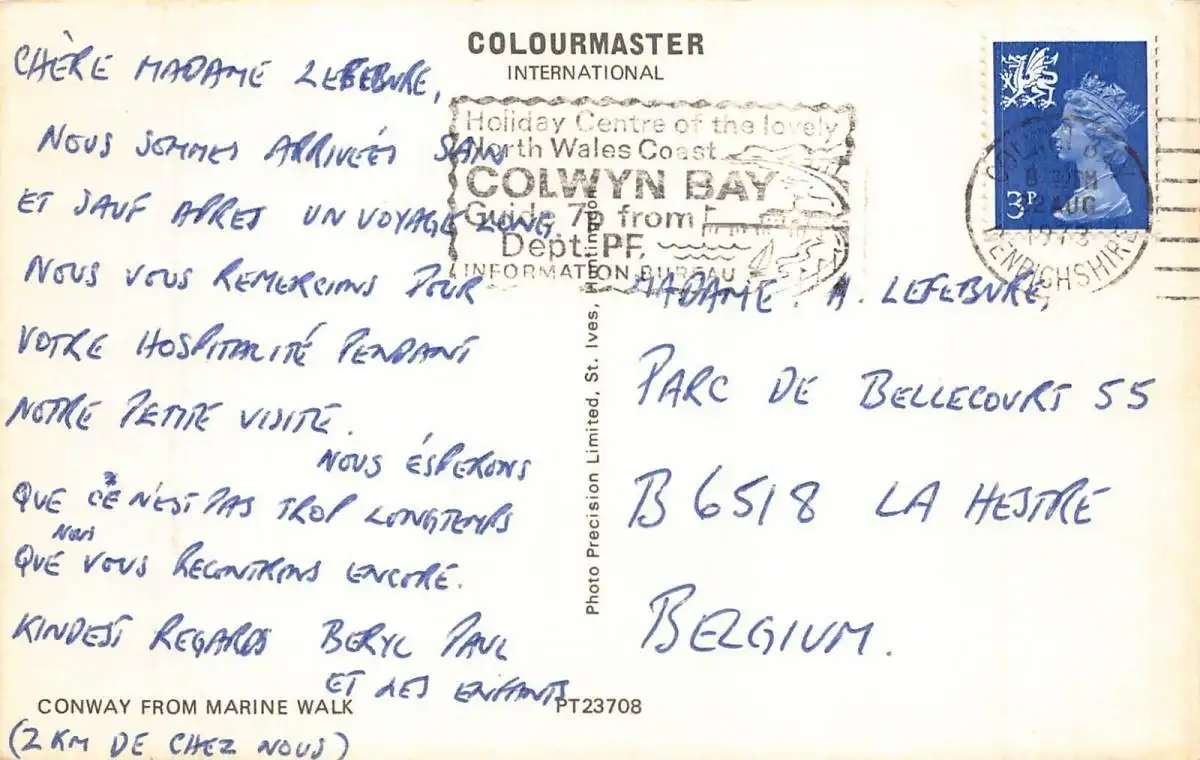 COLOURMASTER
INTERNATIONAL
CHÈRE MADAME LEFEBVRE,
NOUS SOMMES ARRIVÉES SAIN
ET SAUF APRES UN VOYAGE LONG.
NOUS VOUS REMERCIONS POUR
VOTRE HOSPITALITÉ PENDANT
NOTRE PETITE VISITE.
NOUS ÉSPERONS
QUE CE N'EST PAS TROP LONGTEMPS
NOUS
QUE VOUS RECONTRONS ENCORE.
KINDEST REGARDS BERYL PAUL
ET LES ENFANTS
CONWAY FROM MARINE WALK
PT23708
(2 KM DE CHEZ NOUS)
Holiday Centre of the lovely
North Wales Coast
COLWYN BAY
Guide 7p from
Dept. PF,
INFORMATION BUREAU
Photo Precision Limited, St. Ives, Huntingdon
3P
COLWYN BAY
12 AUG
1973
DENBIGHSHIRE
MADAME. A. LEFEBVRE,
PARC DE BELLECOURT 55
B 6518 LA HESTRE
BELGIUM.